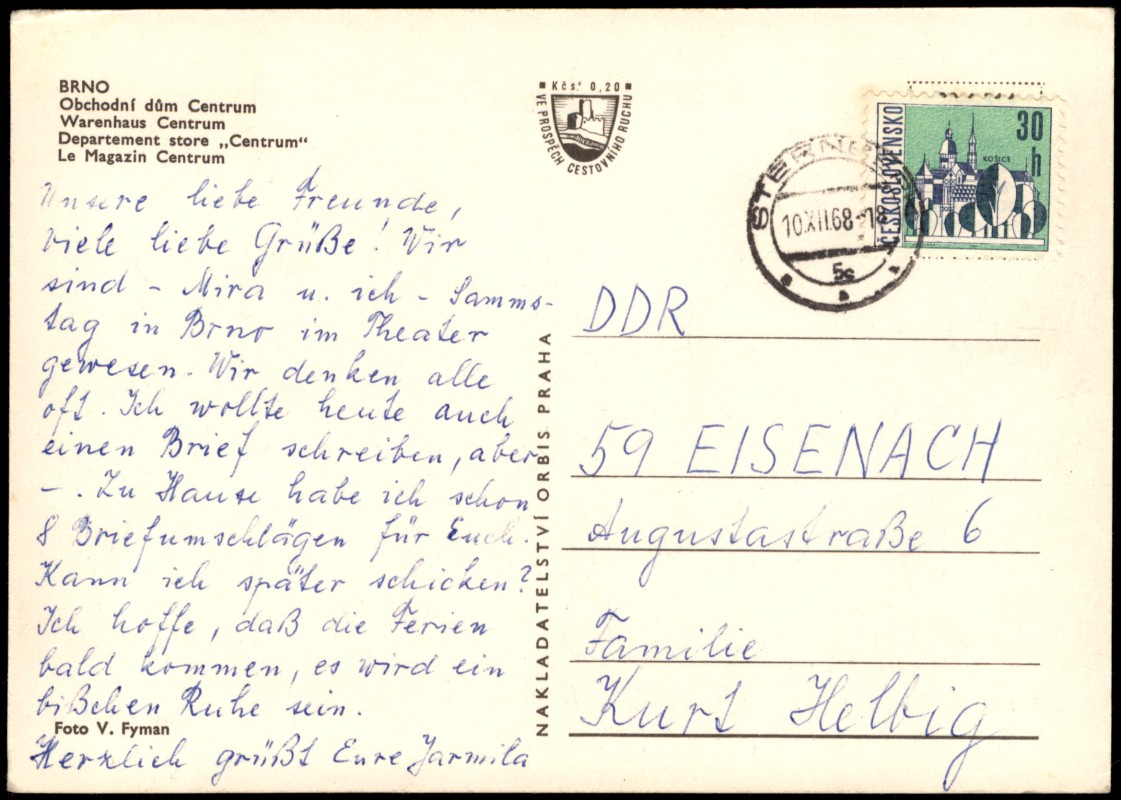 BRNO
Obchodní dům Centrum
Warenhaus Centrum
Departement store „Centrum"
Le Magazin Centrum
Unsere liebe Freunde,
viele liebe Grüße! Wir
sind - Mira u. ich - Samms-
tag in Brno im Theater
gewesen. Wir denken alle
oft. Ich wollte heute auch
einen Brief schreiben, aber
-. Zu Hause habe ich schon
8 Briefumschlägen für Euch.
Kann ich später schicken?
Ich hoffe, daß die Ferien
bald kommen, es wird ein
bißchen Ruhe sein.
Foto V. Fyman
Herzlich grüßt Eure Jarmila
Kčs 0,20
VE PROSPĚCH CESTOVNÍHO RUCHU
NAKLADATELSTVÍ ORBIS PRAHA
ČESKOSLOVENSKO
30
h
KOŠICE
10.XII.68-18
5c
DDR
59 EISENACH
Augustastraße 6
Familie
Kurt Helbig